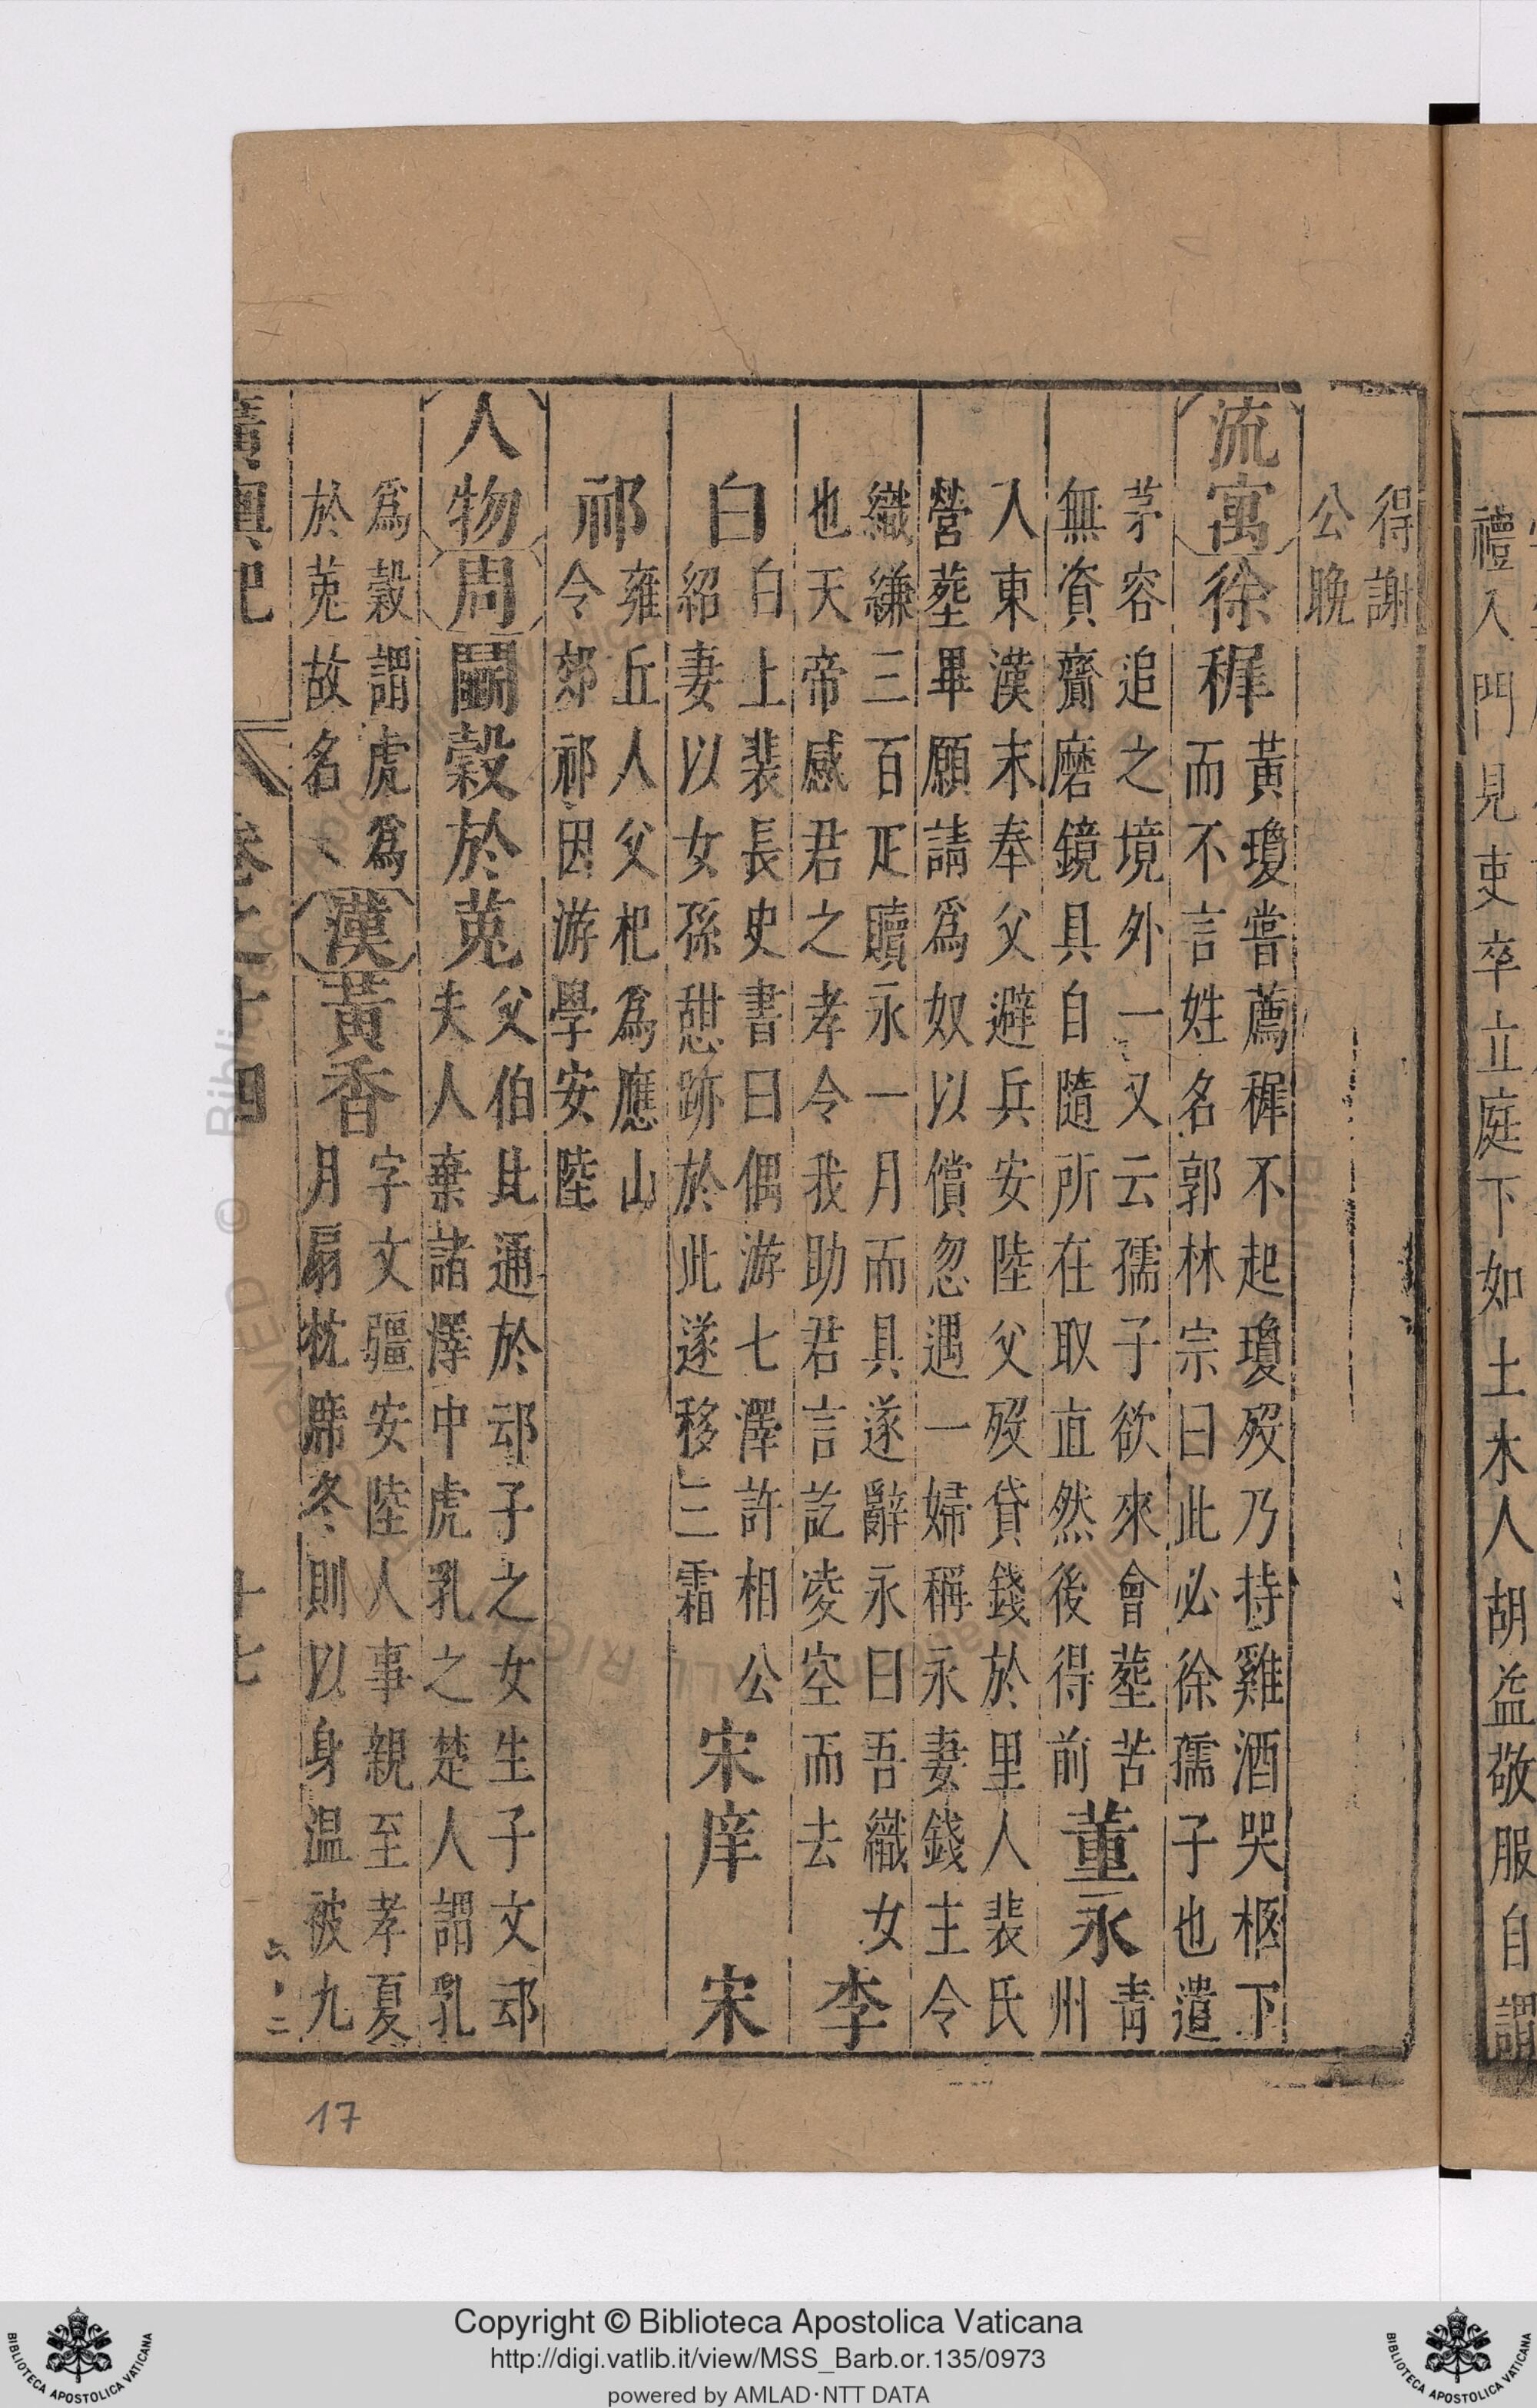 禮入門見吏卒立庭下如土木人胡益敬服自謂
得謝
公晚
流寓徐穉黃瓊嘗薦穉不起瓊歿乃持雞酒哭柩下
而不言姓名郭林宗曰此必徐孺子也遣
茅容追之境外一又云孺子欲來會塟苦
無資齎磨鏡具自隨所在取直然後得前董永青
州
人東漢末奉父避兵安陸父歿貸錢於里人裴氏
營塟畢願請爲奴以償忽遇一婦稱永妻錢主令
織縑三百疋贖永一月而具遂辭永曰吾織女
也天帝感君之孝令我助君言訖凌空而去李
白白上裴長史書曰偶游七澤許相公
紹妻以女孫憇跡於此遂移三霜宋庠宋
祁雍丘人父杞爲應山
令郊祁因游學安陸
人物周鬬穀於菟父伯比通於䢵子之女生子文䢵
夫人棄諸澤中虎乳之楚人謂乳
爲穀謂虎爲
於菟故名漢黃香字文疆安陸人事親至孝夏
月扇枕席冬則以身温被九
廣輿記 卷之十四 十七
17
Copyright © Biblioteca Apostolica Vaticana
http://digi.vatlib.it/view/MSS_Barb.or.135/0973
powered by AMLAD·NTT DATA
BIBLIOTECA APOSTOLICA VATICANA
BIBLIOTECA APOSTOLICA VATICANA